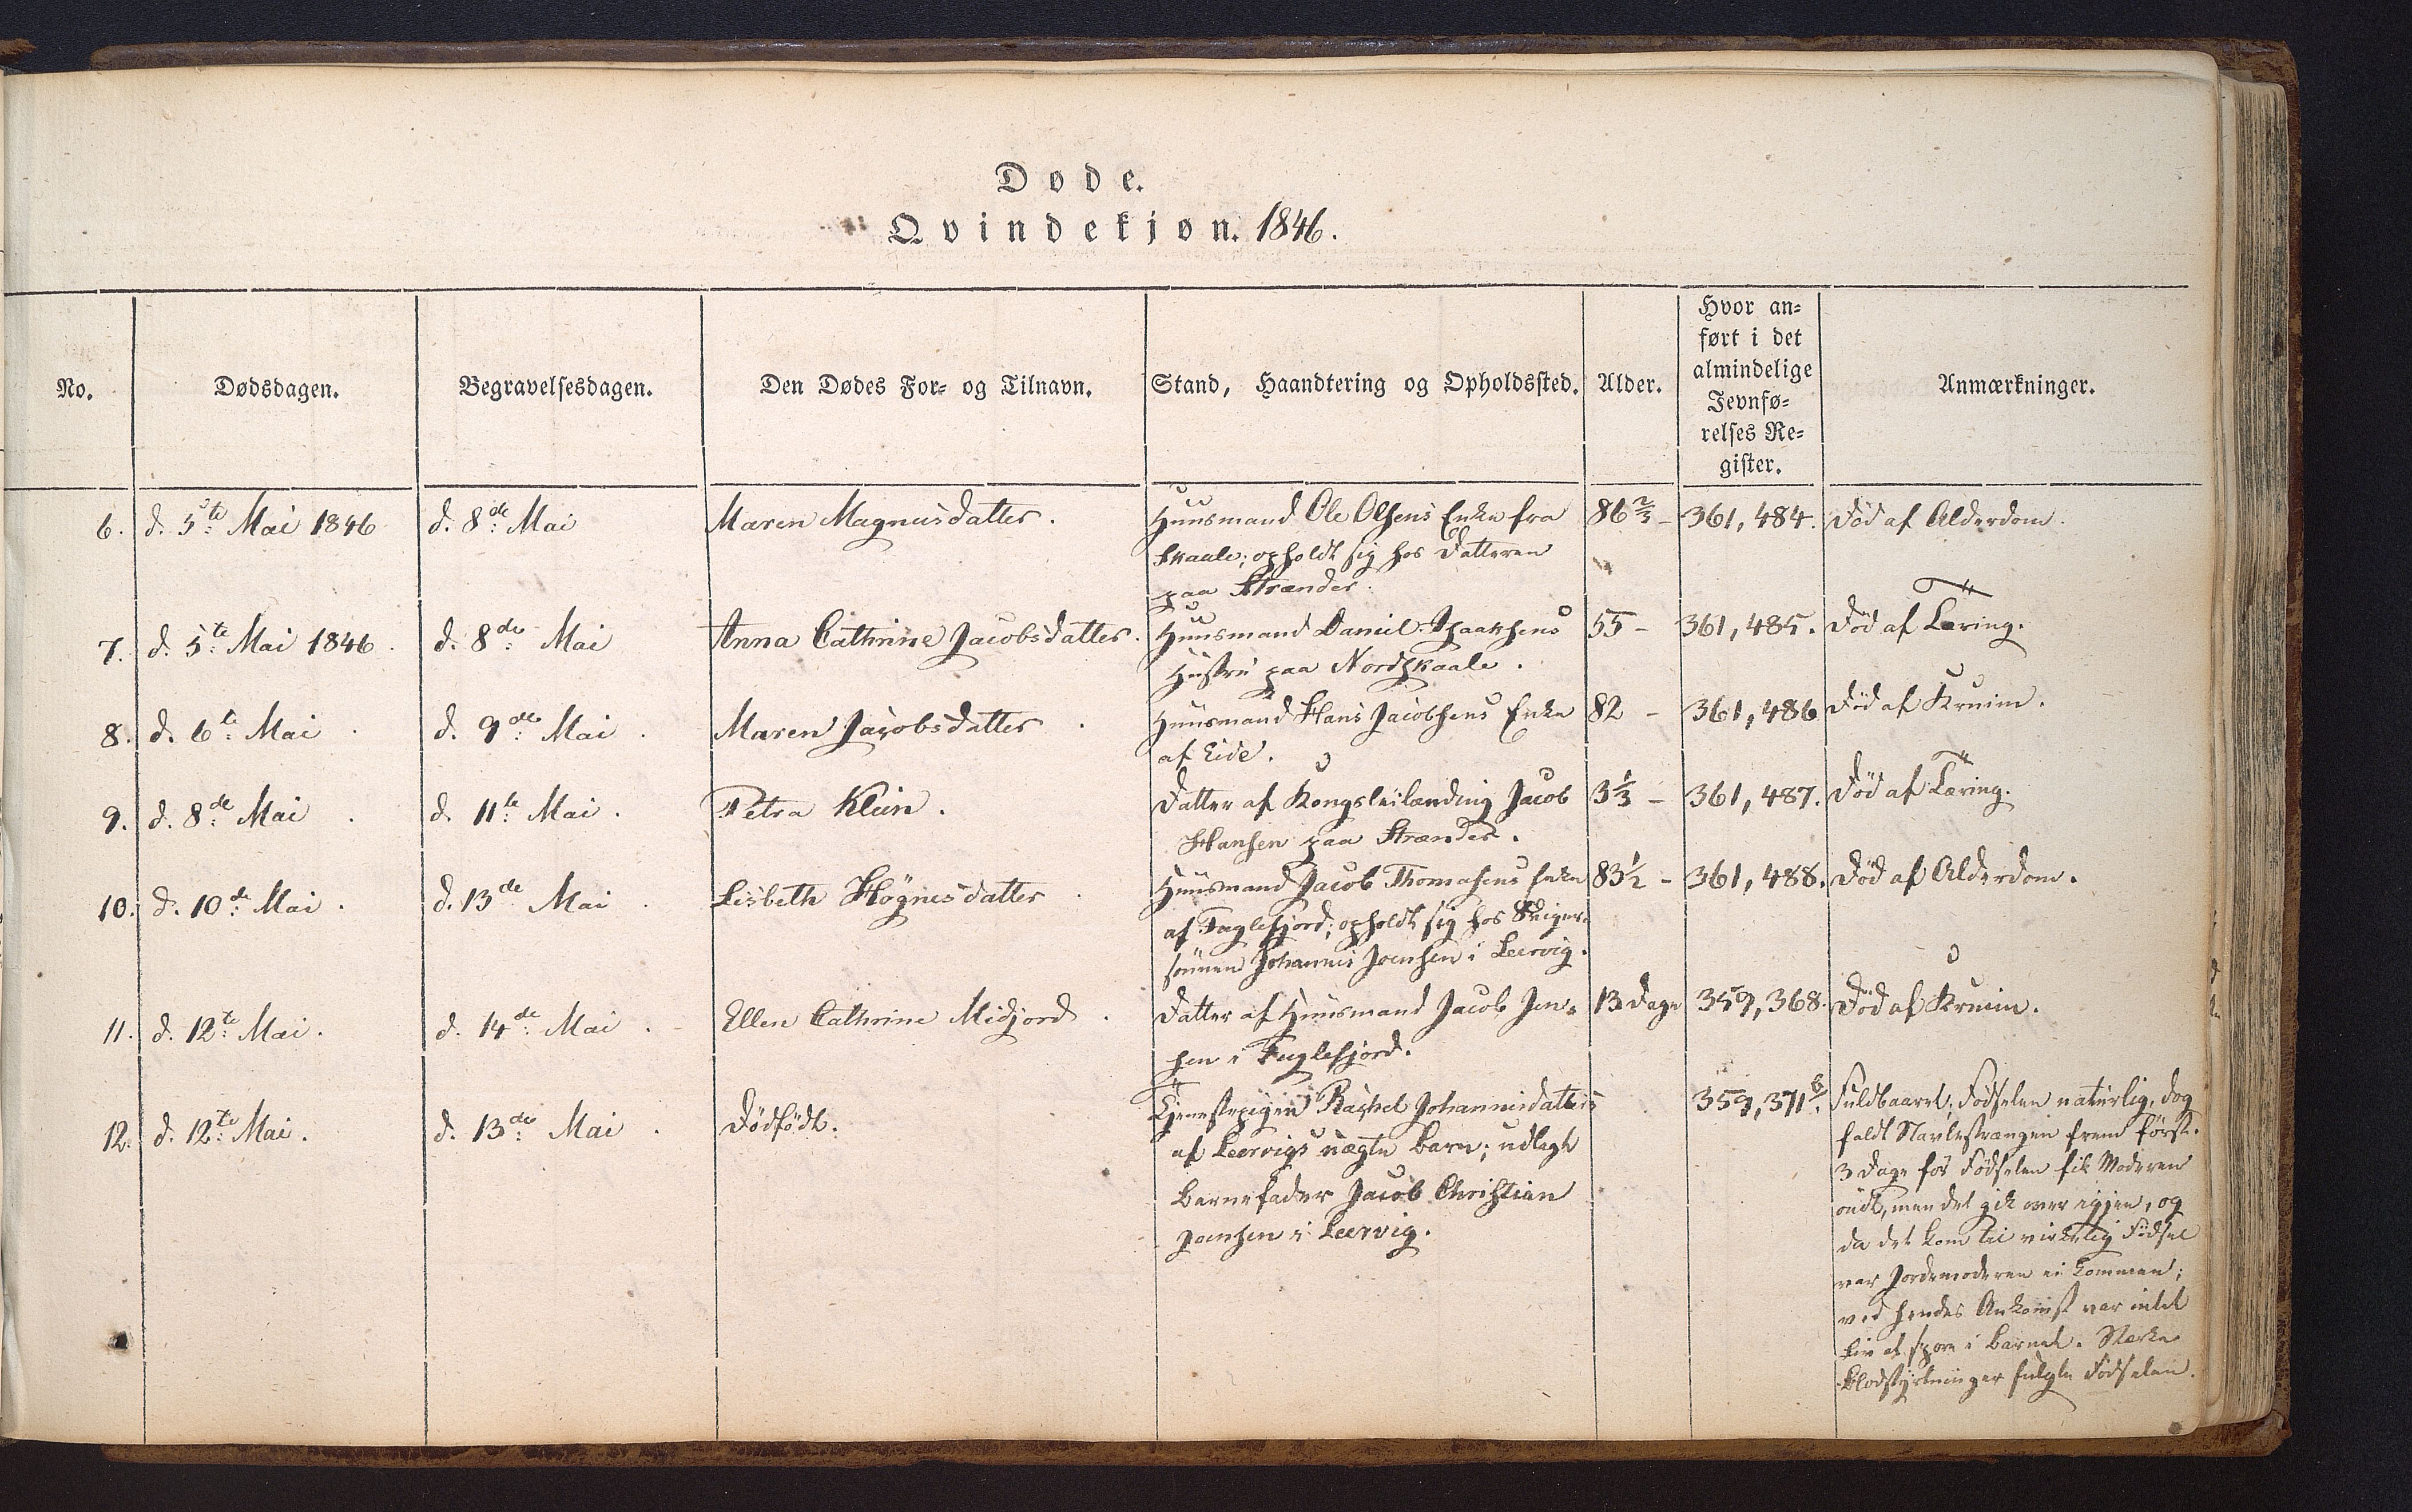 Døde.
Qvindekjøn. 1846.
No.
Dødsdagen.
Begravelsesdagen.
Den Dødes For- og Tilnavn.
Stand, Haandtering og Opholdssted.
Alder.
Hvor an-
ført i det
almindelige
Jevnfø-
relses Re-
gister.
Anmærkninger.
6. d. 5te Mai 1846 d. 8de Mai Maren Magnusdatter. Huusmand Ole Olsens Enke fra 86 2/3 - 361, 484. Død af Alderdom.
Skaale; opholdt sig hos Datteren
paa Strænder.
7. d. 5te Mai 1846. d. 8de Mai Anna Cathrine Jacobsdatter. Huusmand Daniel Isaaksens 55 - 361, 485. Død af Tæring.
Hustru paa Nordskaale.
8. d. 6te Mai. d. 9de Mai. Maren Jacobsdatter. Huusmand Hans Jacobsens Enke 82 - 361, 486 Død af Kruim.
af Eide.
9. d. 8de Mai. d. 11te Mai. Petra Klein. Datter af Kongsleilænding Jacob 3 1/3 - 361, 487. Død af Tæring.
Hansen paa Strænder.
10. d. 10de Mai. d. 13de Mai. Lisbeth Högnesdatter. Huusmand Jacob Thomasens Enke 83 1/2 - 361, 488. Død af Alderdom.
af Fuglefjord; opholdt sig hos Sviger-
sönnen Johannes Joensen i Leervig.
11. d. 12te Mai. d. 14de Mai. Ellen Cathrine Midjord. Datter af Huusmand Jacob Jen- 13 Dage 359, 368. Død af Kruim.
sen i Fuglefjord.
12. d. 12te Mai. d. 13de Mai. Dödfödt. Tjenestepigen Rachel Johannesdatters 359, 371 b. Fuldbaaret; Födselen naturlig, dog
af Leervigs uægte Barn; udlagt
Barnefader Jacob Christian
Joensen i Leervig.
faldt Navlestrængen frem först.
3 Dage for Födselen fik Moderen
ondt, men det gik over igjen, og
da det kom til virkelig Födsel
var Jordemoderen ei kommen;
ved hendes Ankomst var intet
Liv at spore i Barnet. Stærke
Blodstyrtninger fulgte Födselen.